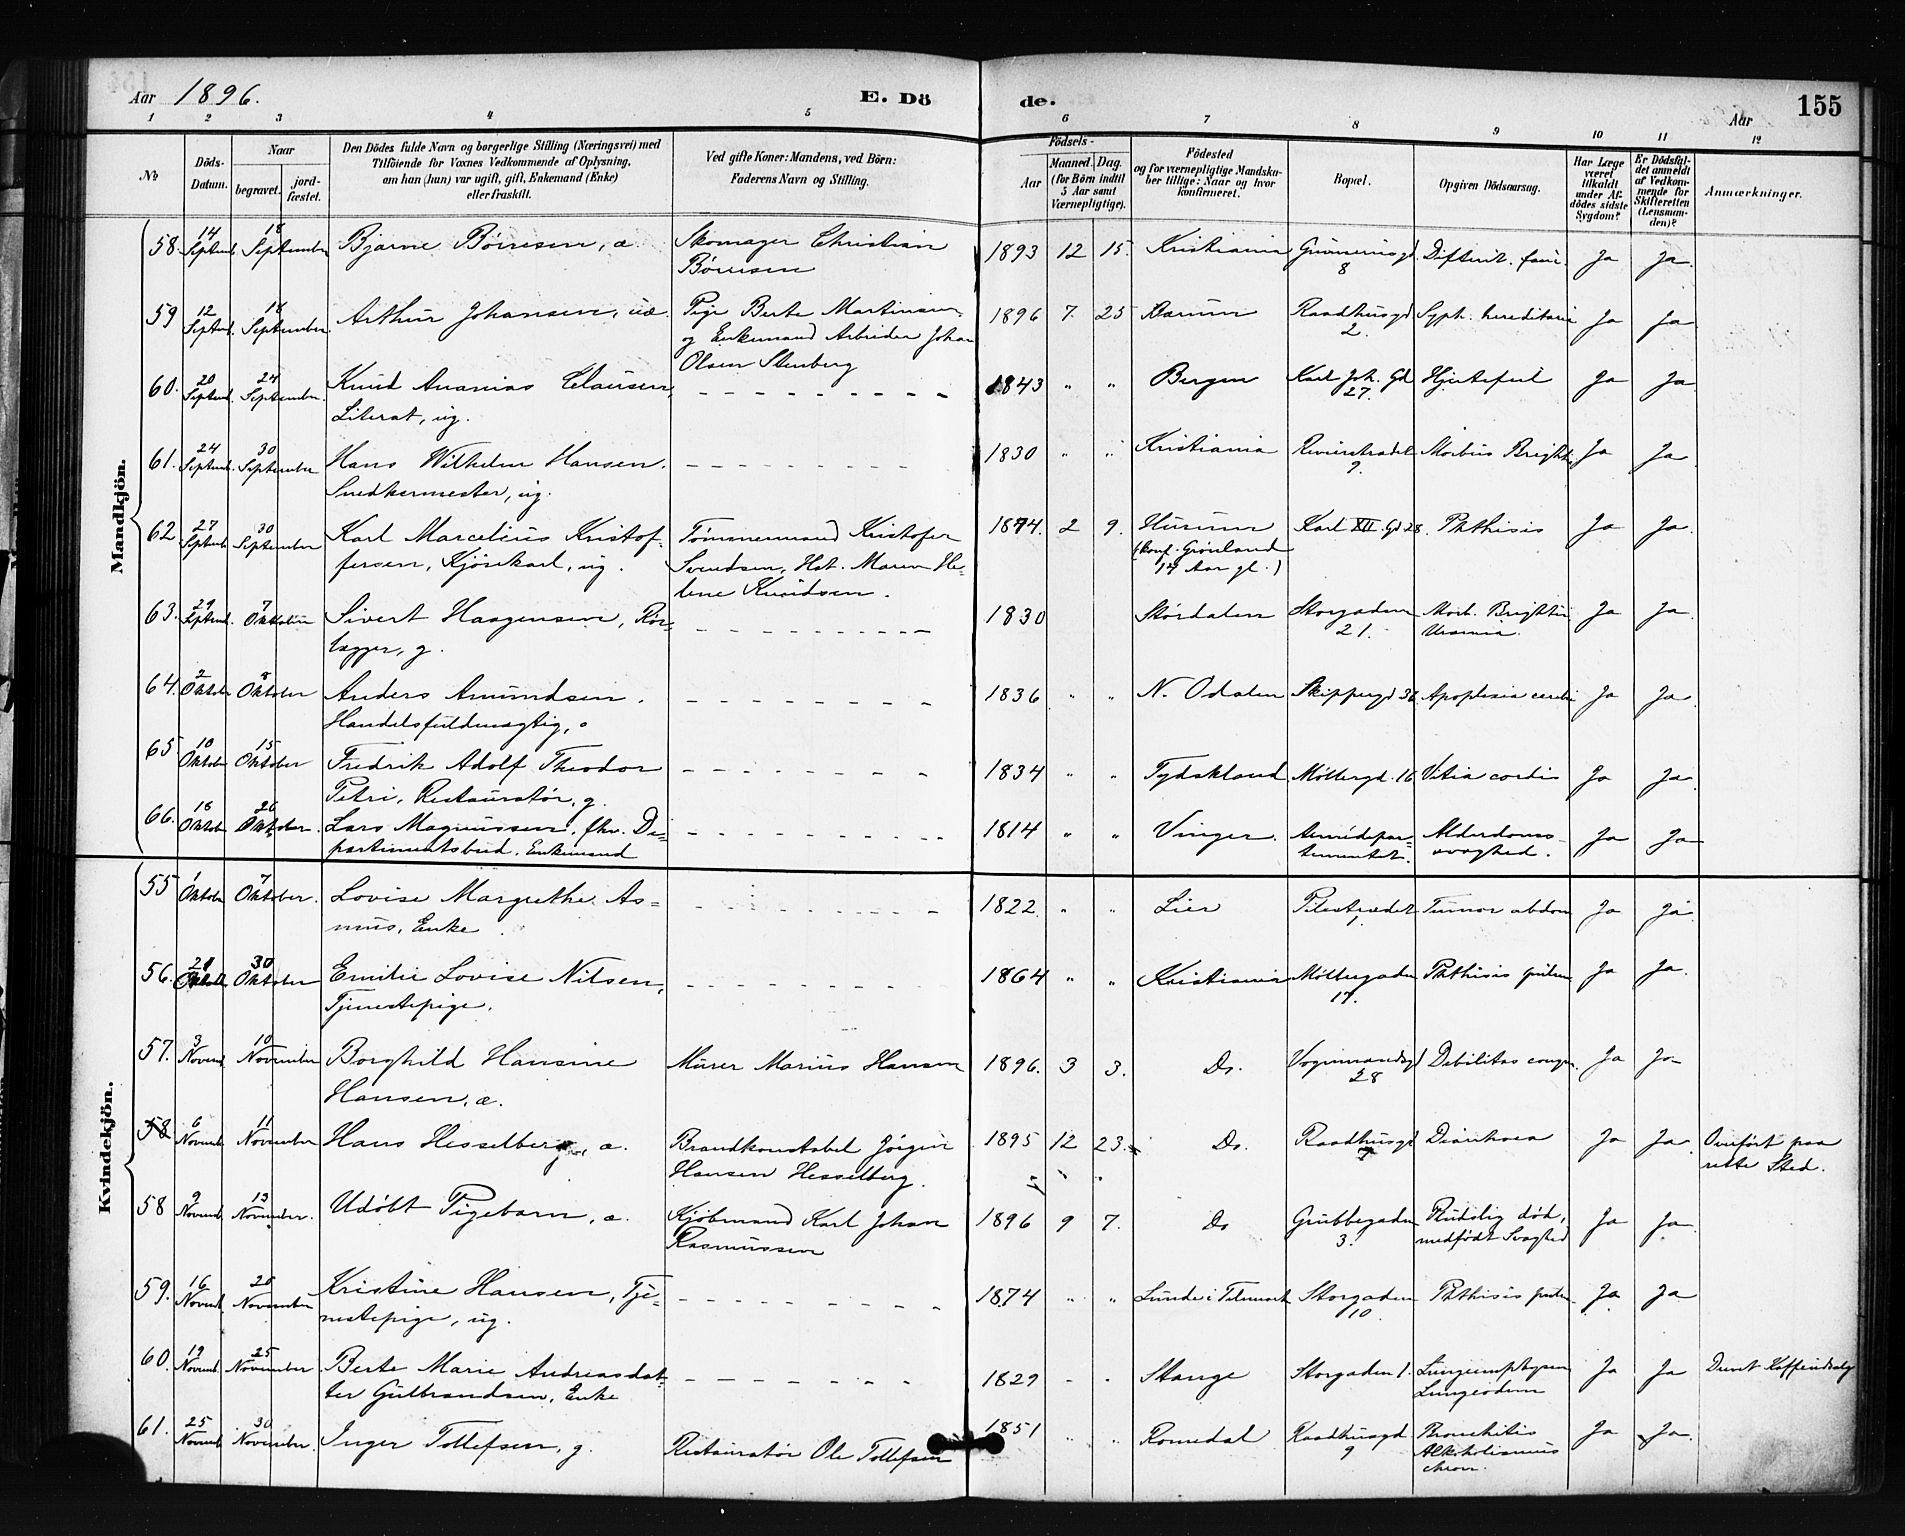 Aar 1896. E. Dö de. Aar 155
1 2 3 4 5 6 7 8 9 10 11 12
No
Döds-Datum.
Naar
begravet. jord-fæstet.
Den Dödes fulde Navn og borgerlige Stilling (Næringsvei) med
Tilföiende for Voxnes Vedkommende af Oplysning,
om han (hun) var ugift, gift, Enkemand (Enke)
eller fraskilt.
Ved gifte Koner: Mandens, ved Börn:
Faderens Navn og Stilling.
Födsels-
Aar
Maaned. Dag.
(for Börn indtil
5 Aar samt
Værnepligtige).
Födested
og for værnepligtige Mandskaber tillige: Naar og hvor
konfirmeret.
Bopæl.
Opgiven Dödsaarsag.
Har Læge
været
tilkaldt
under Afdödes sidste
Sygdom?
Er Dödsfaldet anmeldt
af Vedkommende for
Skifteretten
(Lensmanden)?
Anmærkninger.
Mandkjön.
58. 14 Septemb. 18 September Bjarne Börresen, æ. Skomager Christian 1893 12 15. Kristiania Grönnerusgd. Difterit. fauc. Ja Ja.
Börresen 8
59 12 Septemb. 18 September Arthur Johansen, uæ. Pige Berte Martinsen, 1896 7. 25 Bærum Raadhusgd Syph. hereditaria Ja Ja
og Enkemand Arbeider Johan 2.
Olsen Stenberg
60. 20 Septemb. 24 September. Knud Ananias Clausen, 1843 " " Bergen Karl Joh. Gd Hjertefeil Ja Ja
Literat, ug. 27.
61. 24 Septemb. 30 September Hans Wilhelm Hansen. 1830 " " Kristiania Revierstrædet Morbus Brightii Ja Ja
Snedkermester, ug. 9.
62 27 Septemb. 30 September Karl Marcelius Kristof- Tömmermand Kristofer 1874. 2 9. Hurum Karl XII. Gd 28. Phthisis Ja Ja.
fersen, Kjörekarl, ug. Svendsen, Hst. Maren He- (konf. Grönland
lene Knudsen. 14 Aar gl.)
63. 29 Septemb. 7 Oktober Sivert Haagensen, Rör- 1830 Stördalen Storgaden Morb. Brightii Ja Ja
lægger, g. 21. Uræmia.
64. 2 Oktober 8 Oktober Anders Amundsen. 1836 " " N. Odalen Skippergd 36 Apoplexia cerebri Ja Ja
Handelsfuldmægtig,
65 10 Oktober 15 Oktober Fredrik Adolf Theodor 1834 " " Tydskland Möllergd. 16 Vitia cordis Ja Ja
Petri, Restauratör, g.
66. 18 Oktob. 26 Oktober. Lars Magnussen, fhv. De- 1814 " " Vinger. Alderdoms- Ja Ja
partementsbud. Enkemand svaghed.
Kvindekjön.
55 1 Oktober 7 Oktober. Lovise Margrethe As- 1822 " " Lier Pilestrædet Tumor abdom Ja Ja
mus, Enke
56. 21 Oktober 30 Oktober Emilie Lovise Nilsen, 1864 " " Kristiania Möllergaden Phthisis pulm Ja Ja.
Tjenestepige. 17.
57. 3 Novemb. 10 November Borghild Hansine Murer Marius Hansen 1896. 3 3. Do. Vognmandsgd Debilitas congen. Ja Ja
Hansen, æ. 28
58 6 Novemb. 11 November Hans Hesselberg, æ. Brandkonstabel Jörgen 1895 12 23. Do. Raadhusgd Diarrhoea Ja Ja. Omfört paa
Hansen Hesselberg. 7 rette Sted.
58 9 Novemb. 13 November. Udöbt Pigebarn, æ. Kjöbmand Karl Johan 1896 9 7. Do Grubbegaden Pludslig död, Ja Ja.
Rasmussen 3. medfödt Svaghed
59. 16 Novemb. 20 November Kristine Hansen, Tje- 1874 " " Lunde i Telemark Storgaden Phthisis pulm. Ja Ja
nestepige, ug. 10
60. 19 Novemb. 25 November Berte Marie Andreasdat- 1829 " " Stange Storgaden 1. Lungeemphysem Ja Ja Drevet Kaffeudsalg
ter Gulbrandsen, Enke Lungeödem
61. 25 Novemb. 30 November. Inger Tollefsen, g. Restauratör Ole Tollefsen 1851 " " Romedal Raadhusgd Bronchitis Ja Ja.
9 Alkoholismus
chron.